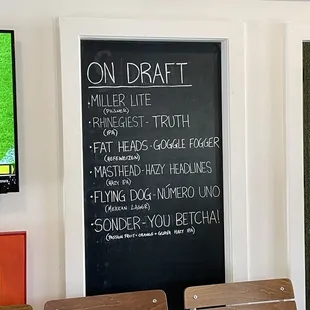 ON DRAFT
• MILLER LITE
(PILSNER)
• RHINEGIEST - TRUTH
(IPA)
• FAT HEADS - GOGGLE FOGGER
(HEFEWEIZEN)
• MASTHEAD - HAZY HEADLINES
(HAZY IPA)
• FLYING DOG - NÚMERO UNO
(MEXICAN LAGER)
• SONDER - YOU BETCHA!
(PASSION FRUIT + ORANGE + GUAVA HAZY IPA)